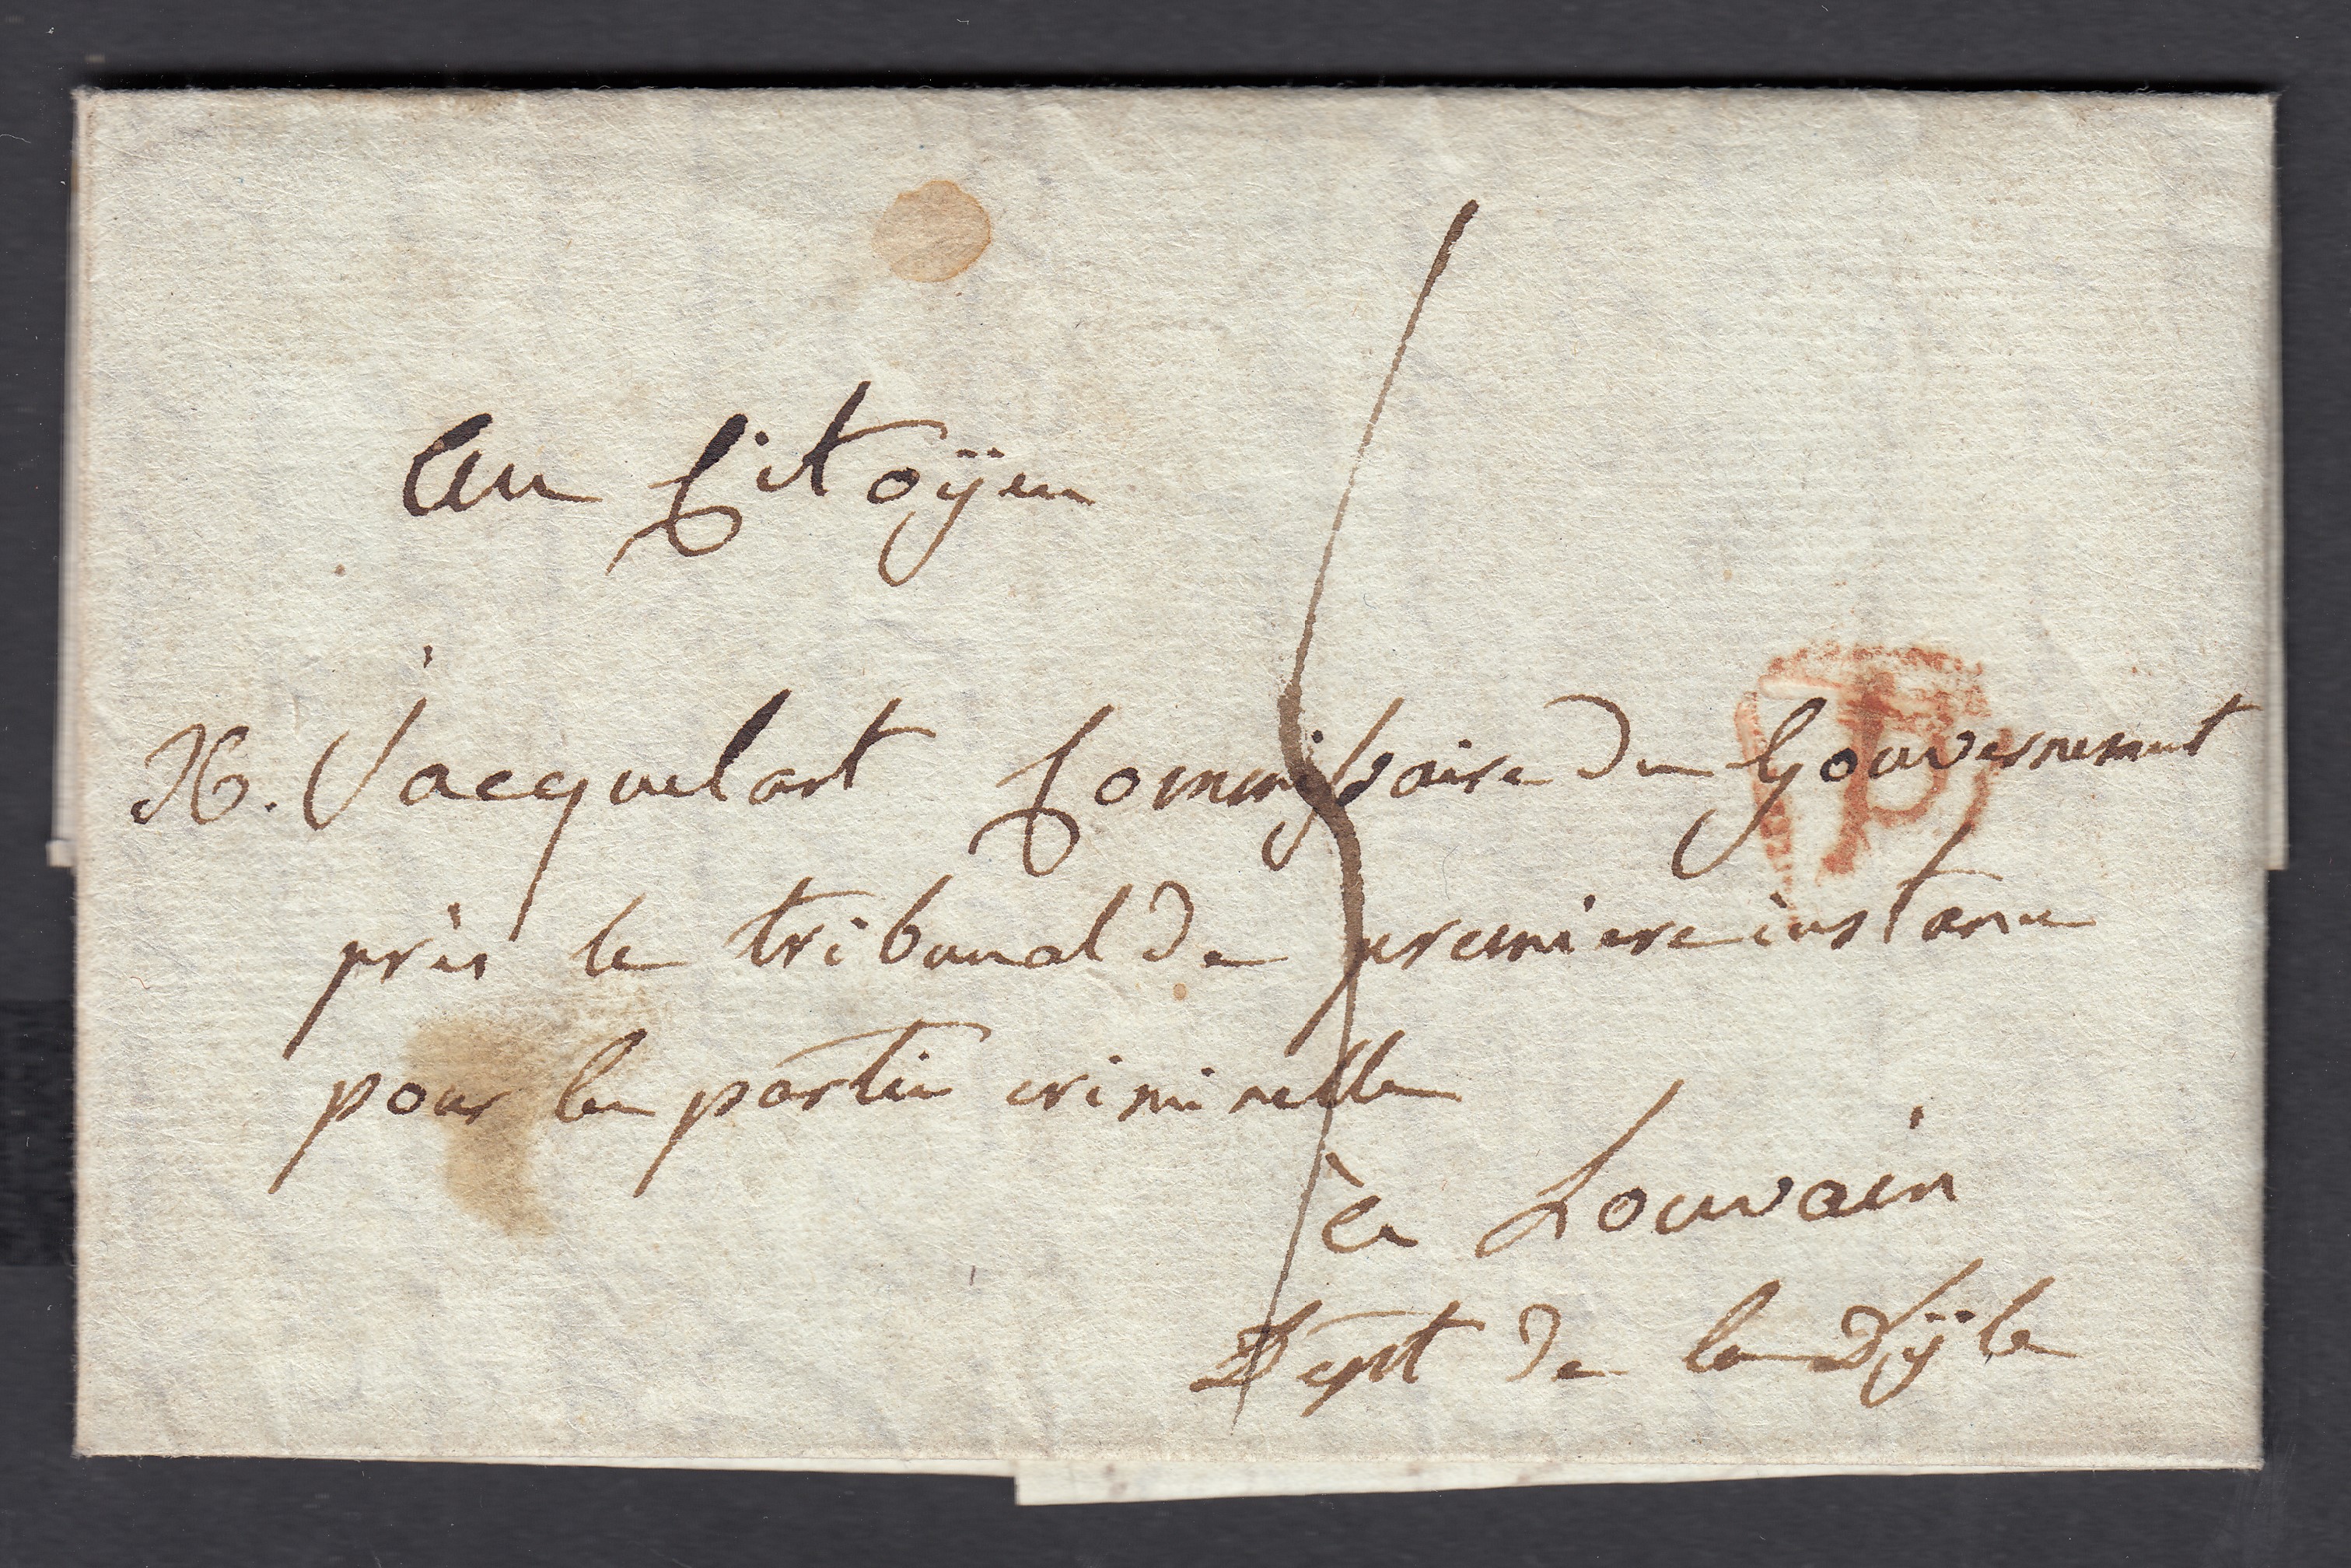 Au Citoÿen
H. Jacquelart Commissaire du Gouvernement
près le tribunal de premiere instance
pour la partie criminelle
à Louvain
Dept de la Dÿle
P